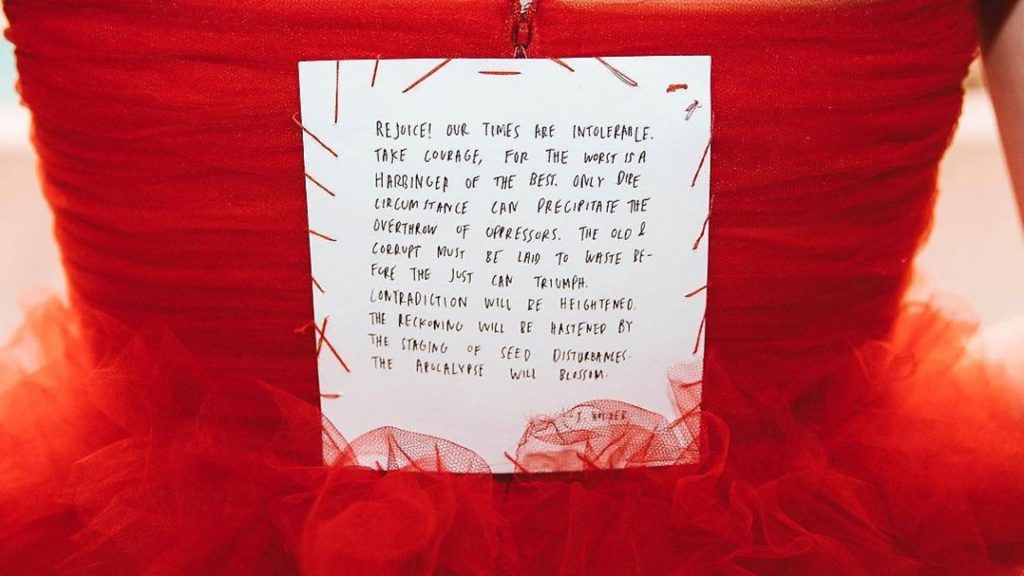 REJOICE! OUR TIMES ARE INTOLERABLE.
TAKE COURAGE, FOR THE WORST IS A
HARBINGER OF THE BEST. ONLY DIRE
CIRCUMSTANCE CAN PRECIPITATE THE
OVERTHROW OF OPPRESSORS. THE OLD &
CORRUPT MUST BE LAID TO WASTE BE-
FORE THE JUST CAN TRIUMPH.
CONTRADICTION WILL BE HEIGHTENED.
THE RECKONING WILL BE HASTENED BY
THE STAGING OF SEED DISTURBANCES.
THE APOCALYPSE WILL BLOSSOM.
J. HOLZER